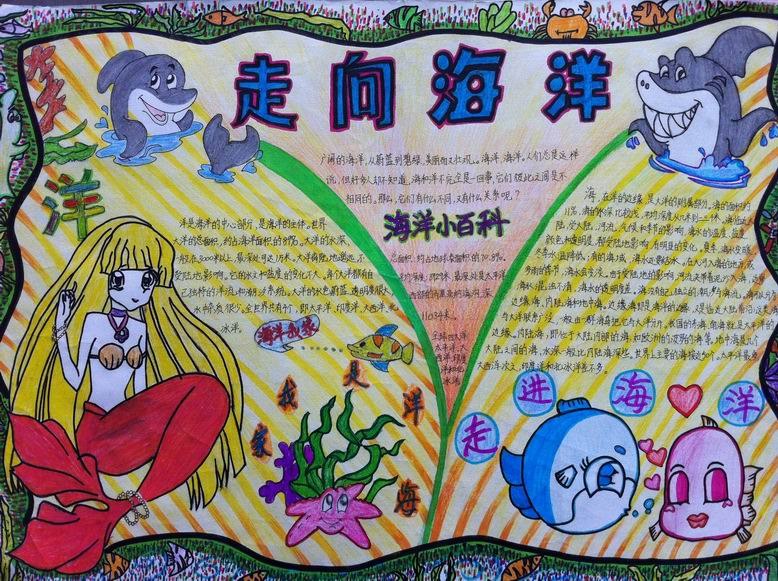 走向海洋
海
洋
广阔的海洋,从蔚蓝到碧绿,美丽而又壮观。海洋,海洋。人们总是这样
说,但好多人却不知道,海和洋不完全是一回事,它们彼此之间是不
相同的。那么,它们有什么不同,又有什么关系呢?
海洋小百科
洋是海洋的中心部分,是海洋的主体。世界
大洋的总面积,约占海洋面积的89%。大洋的水深,
一般在3000米以上,最深处可达1万多米。大洋离陆地遥远,不
受陆地影响。它的水文和盐度的变化不大。每个大洋都有自
己独特的洋流和潮汐系统。大洋的水色蔚蓝,透明度很大,
水中杂质很少。全世界共有4个,即太平洋、印度洋、大西洋、北
冰洋。
总面积,约占地球表面积的70.8%。
米,最深处是太平洋
西部的马里亚纳海沟,深
11034米。
全球四大洋
太平洋,大
西洋,印度
洋和北
冰洋
海,在洋的边缘,是大洋的附属部分。海的面积约
占11%,海的水深比较浅,平均深度从几米到二三千米。海临近大
陆,受大陆、河流、气候和季节的影响,海水的温度、盐度、
颜色和透明度,都受陆地影响,有明显的变化。夏季,海水变暖,
冬季水温降低;有的海域,海水还要结冰。在大河入海的地方,或
多雨的季节,海水会变淡。由于受陆地影响,河流夹带着泥沙入海,近岸
海水混浊不清,海水的透明度差。海没有自己独立的潮汐与海流。海可以分为
边缘海、内陆海和地中海。边缘海既是海洋的边缘,又是临近大陆前沿;这类海
与大洋联系广泛,一般由一群海岛把它与大洋分开。我国的东海、南海就是太平洋的
边缘海。内陆海,即位于大陆内部的海,如欧洲的波罗的海等。地中海是几个
大陆之间的海,水深一般比内陆海深些。世界上主要的海接近50个。太平洋最多,
大西洋次之,印度洋和北冰洋差不多。
海洋我家
海洋是我家
走进海洋